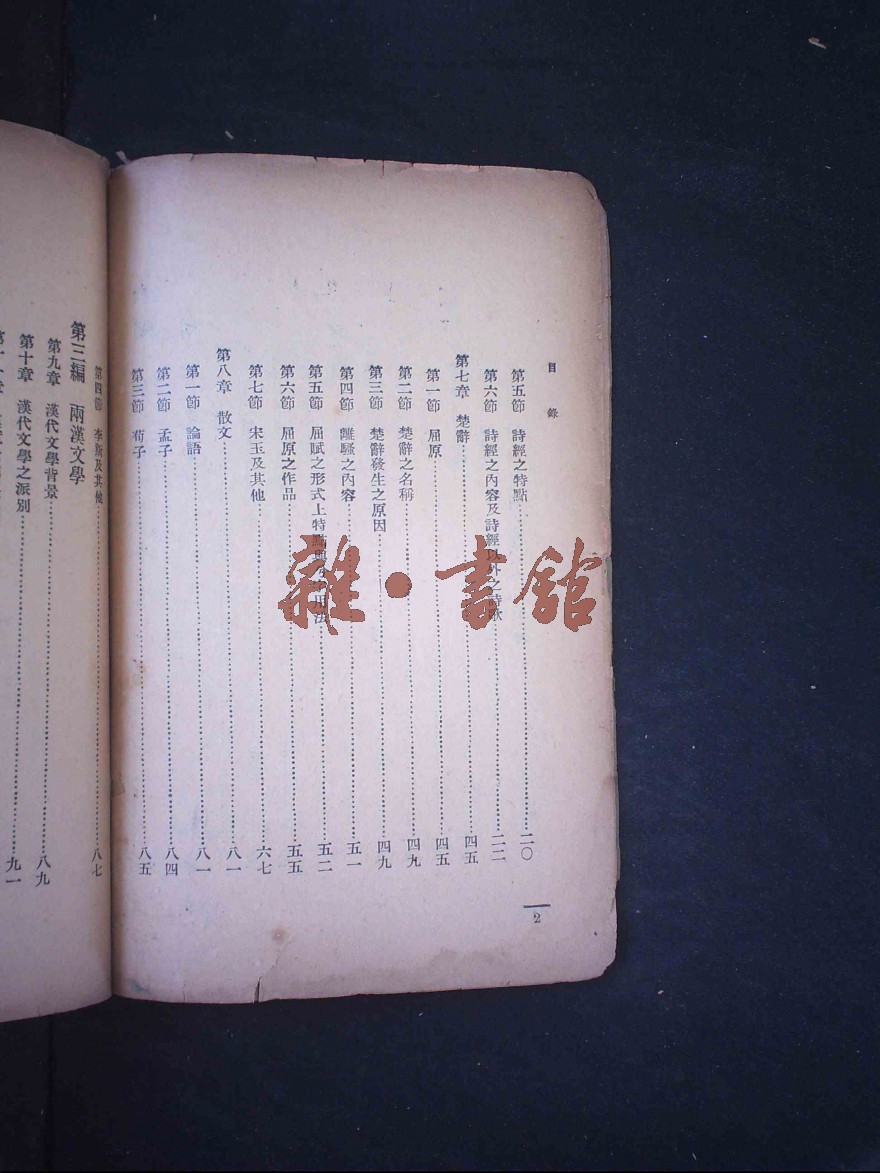 目錄
第五節 詩經之特點……二〇
第六節 詩經之內容及詩經以外之詩歌……二二
第七章 楚辭……四五
第一節 屈原……四五
第二節 楚辭之名稱……四九
第三節 楚辭發生之原因……四九
第四節 離騷之內容……五一
第五節 屈賦之形式上特點與 用法……五二
第六節 屈原之作品……五五
第七節 宋玉及其他……六七
第八章 散文……八一
第一節 論語……八一
第二節 孟子……八四
第三節 荀子……八五
2
第四節 李斯及其他……八七
第三編 兩漢文學
第九章 漢代文學背景……八九
第十章 漢代文學之派別……九一
雜·書館